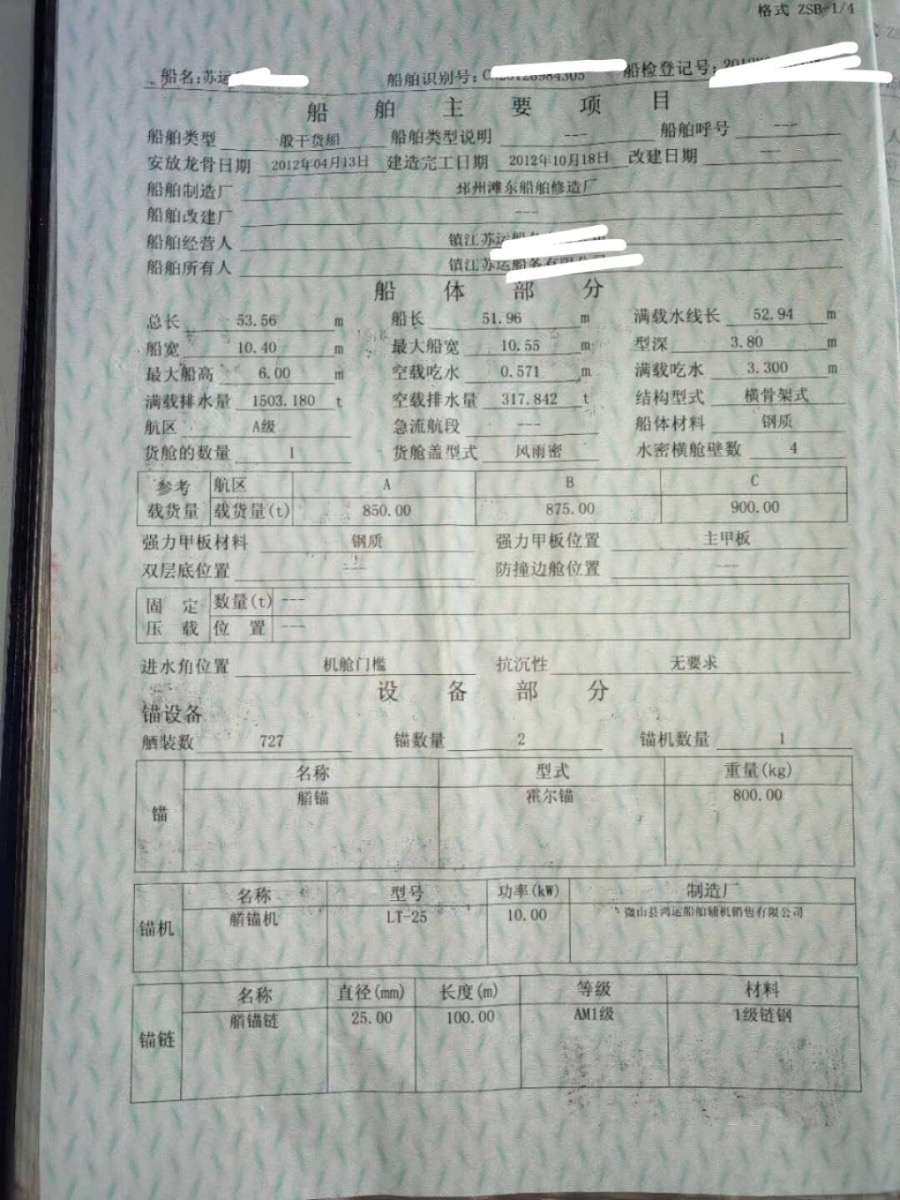 格式 ZSB-1/4
船名:苏运 船舶识别号: 船检登记号:
船舶主要项目
船舶类型 一般干货船 船舶类型说明 --- 船舶呼号 ---
安放龙骨日期 2012年04月13日 建造完工日期 2012年10月18日 改建日期 ---
船舶制造厂 邳州滩东船舶修造厂
船舶改建厂 ---
船舶经营人 镇江苏运
船舶所有人 镇江苏运船务有限公司
船体部分
总长 53.56 m 船长 51.96 m 满载水线长 52.94 m
船宽 10.40 m 最大船宽 10.55 m 型深 3.80 m
最大船高 6.00 m 空载吃水 0.571 m 满载吃水 3.300 m
满载排水量 1503.180 t 空载排水量 317.842 t 结构型式 横骨架式
航区 A级 急流航段 --- 船体材料 钢质
货舱的数量 1 货舱盖型式 风雨密 水密横舱壁数 4
参考 航区 A B C
载货量 载货量(t) 850.00 875.00 900.00
强力甲板材料 钢质 强力甲板位置 主甲板
双层底位置 --- 防撞边舱位置 ---
固定 数量(t) ---
压载 位置 ---
进水角位置 机舱门槛 抗沉性 无要求
设备部分
锚设备
舾装数 727 锚数量 2 锚机数量 1
名称 型式 重量(kg)
锚 艏锚 霍尔锚 800.00
名称 型号 功率(kW) 制造厂
锚机 艏锚机 LT-25 10.00 微山县鸿运船舶辅机销售有限公司
名称 直径(mm) 长度(m) 等级 材料
锚链 艏锚链 25.00 100.00 AM1级 1级链钢